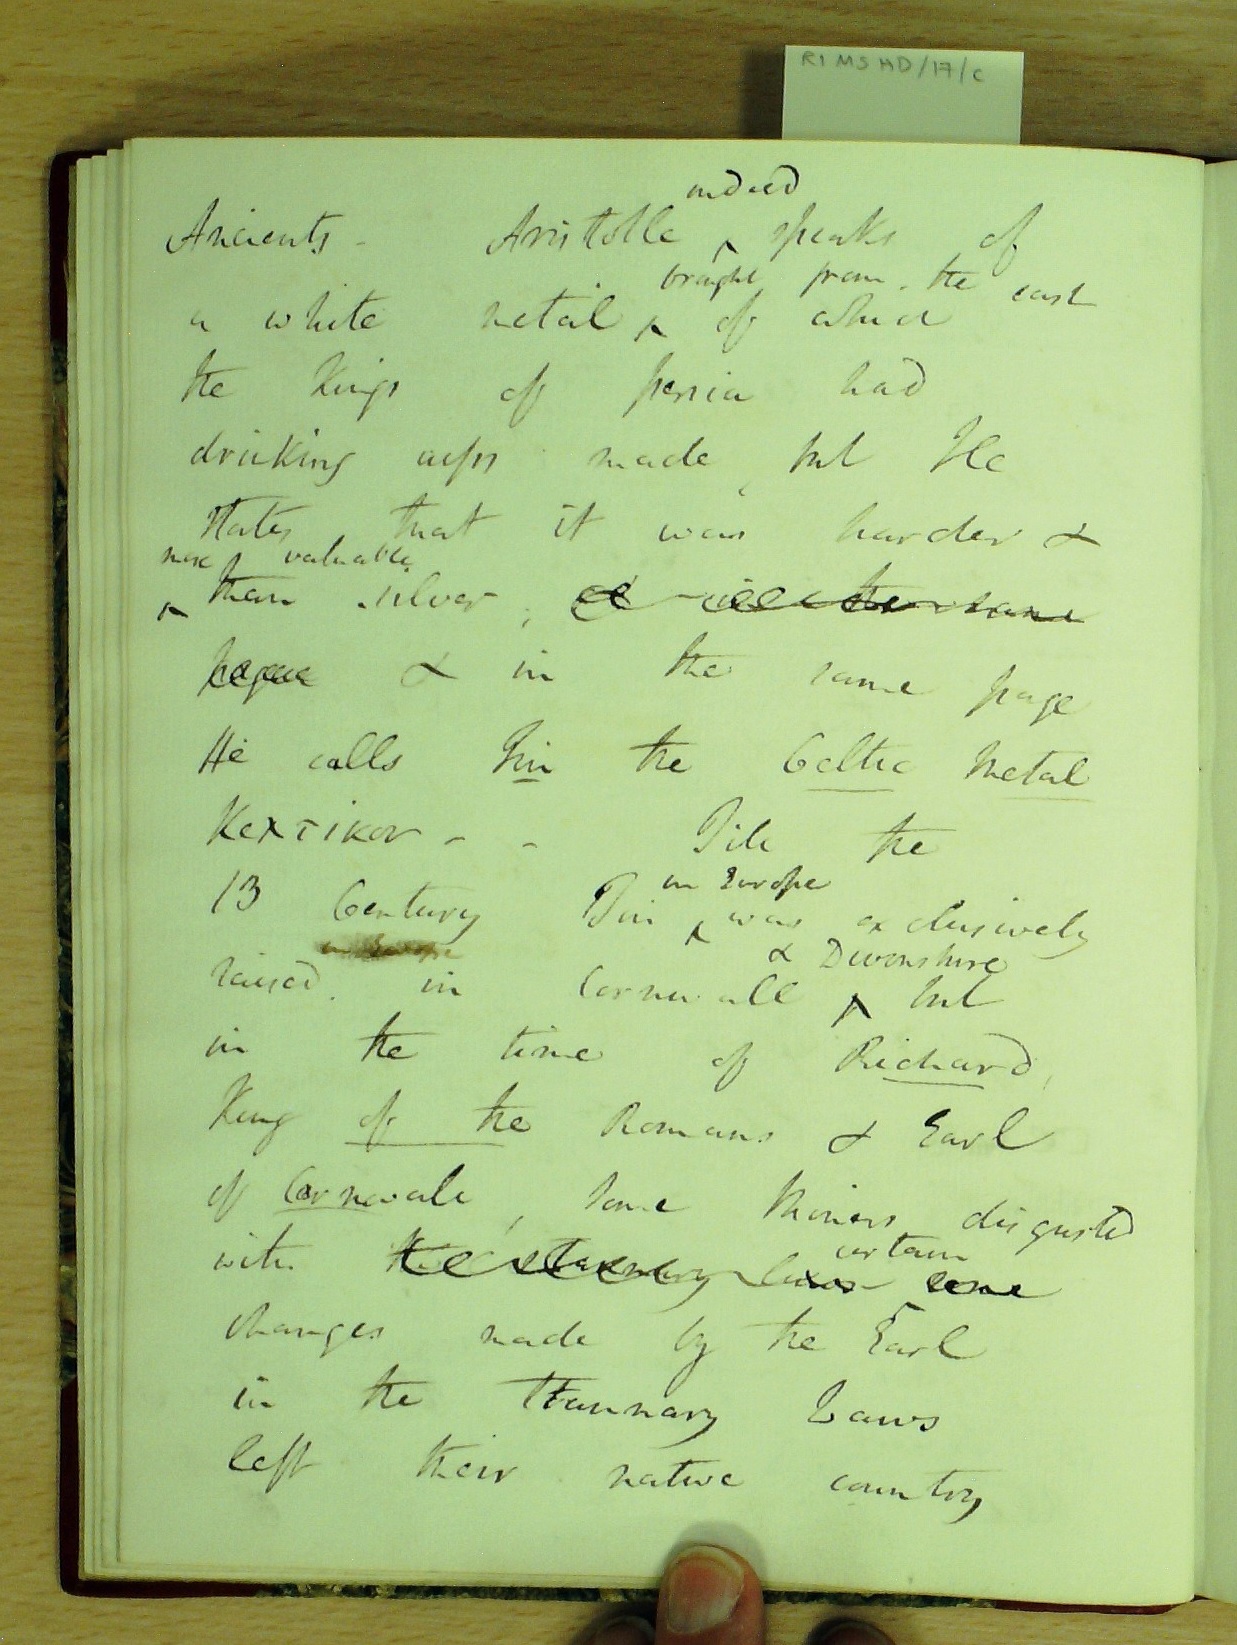 RI MS HD/17/C
indeed
Ancients - Aristotle ‸ speaks of
brought from the east
a white metal ‸ of which
the Kings of Persia had
drinking cups made, but He
states that it was harder &
more valuable
‸ than silver, the same
& in the same page
He calls Tin the Celtic Metal
Κελτικον - - Till the
in Europe
13 Century Tin ‸ was exclusively
in Europe
& Devonshire
raised in Cornwall ‸ but
in the time of Richard,
King of the Romans & Earl
of Cornwall, some Miners disgusted
certain
with the stannary laws some
changes made by the Earl
in the Stannary Laws
left their native country